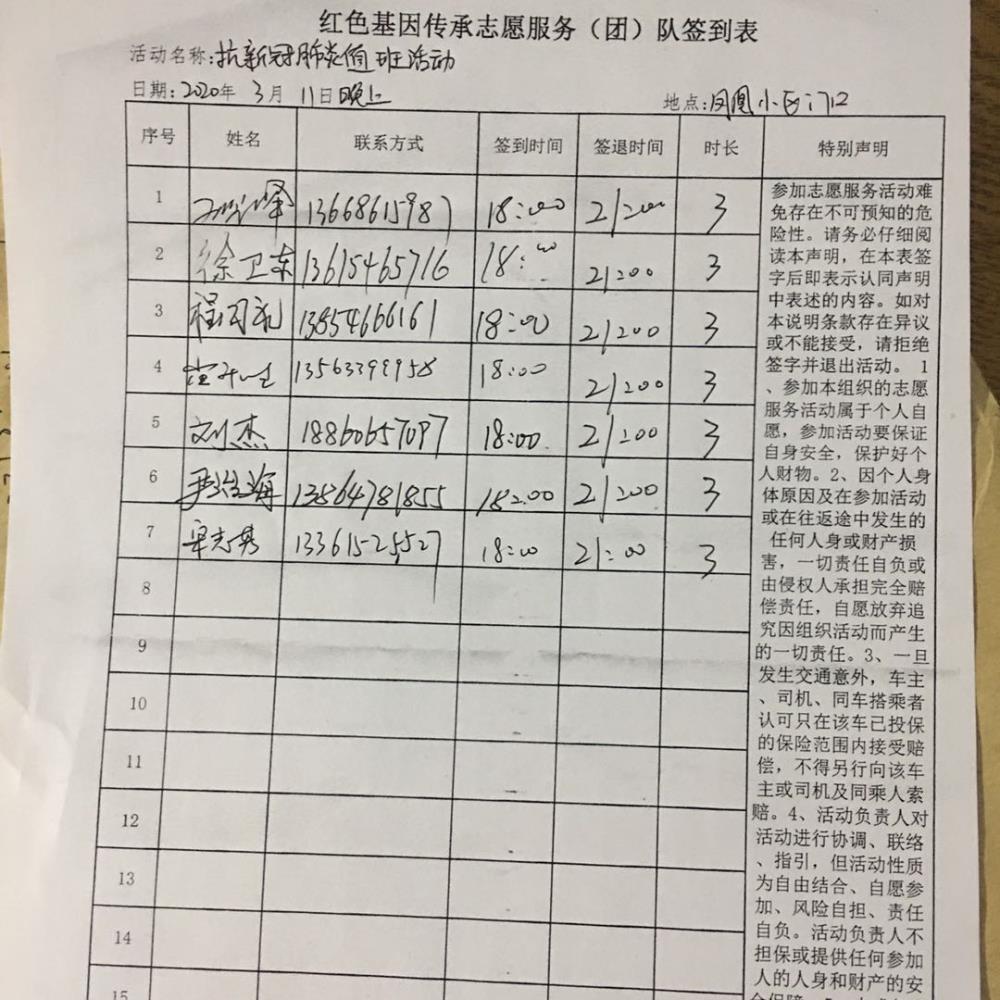 红色基因传承志愿服务（团）队签到表
活动名称:抗新冠肺炎值班活动
日期:2020年 3月 11日晚上 地点:凤凰小区门口
序号 姓名 联系方式 签到时间 签退时间 时长 特别声明
1 13668615987 18:00 21:00 3
2 徐卫东 13615465716 18:00 21:00 3
3 13854666161 18:00 21:00 3
4 13563399958 18:00 21:00 3
5 刘杰 18860657097 18:00 21:00 3
6 13864781855 18:00 21:00 3
7 13361525527 18:00 21:00 3
8
9
10
11
12
13
14
15
参加志愿服务活动难
免存在不可预知的危
险性。请务必仔细阅
读本声明，在本表签
字后即表示认同声明
中表述的内容。如对
本说明条款存在异议
或不能接受，请拒绝
签字并退出活动。 1
、参加本组织的志愿
服务活动属于个人自
愿，参加活动要保证
自身安全，保护好个
人财物。2、因个人身
体原因及在参加活动
或在往返途中发生的
任何人身或财产损
害，一切责任自负或
由侵权人承担完全赔
偿责任，自愿放弃追
究因组织活动而产生
的一切责任。3、一旦
发生交通意外，车主
、司机、同车搭乘者
认可只在该车已投保
的保险范围内接受赔
偿，不得另行向该车
主或司机及同乘人索
赔。4、活动负责人对
活动进行协调、联络
、指引，但活动性质
为自由结合、自愿参
加、风险自担、责任
自负。活动负责人不
担保或提供任何参加
人的人身和财产的安